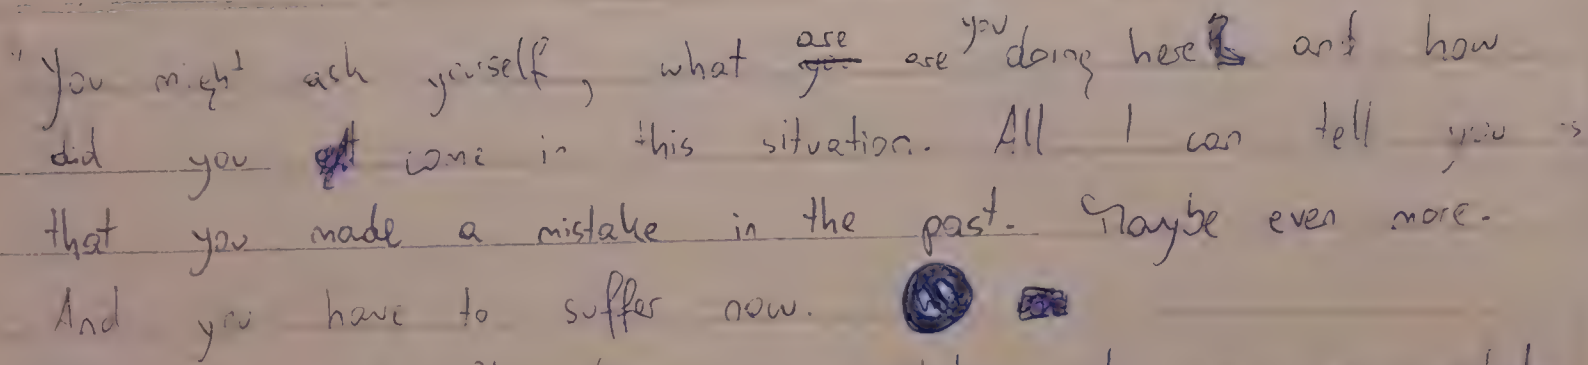 "You might ask yourself", what are are you doing here and how
did you come in this situation. All I can tell you is
that you made a mistake in the past. Maybe even more.
And you have to suffer now.